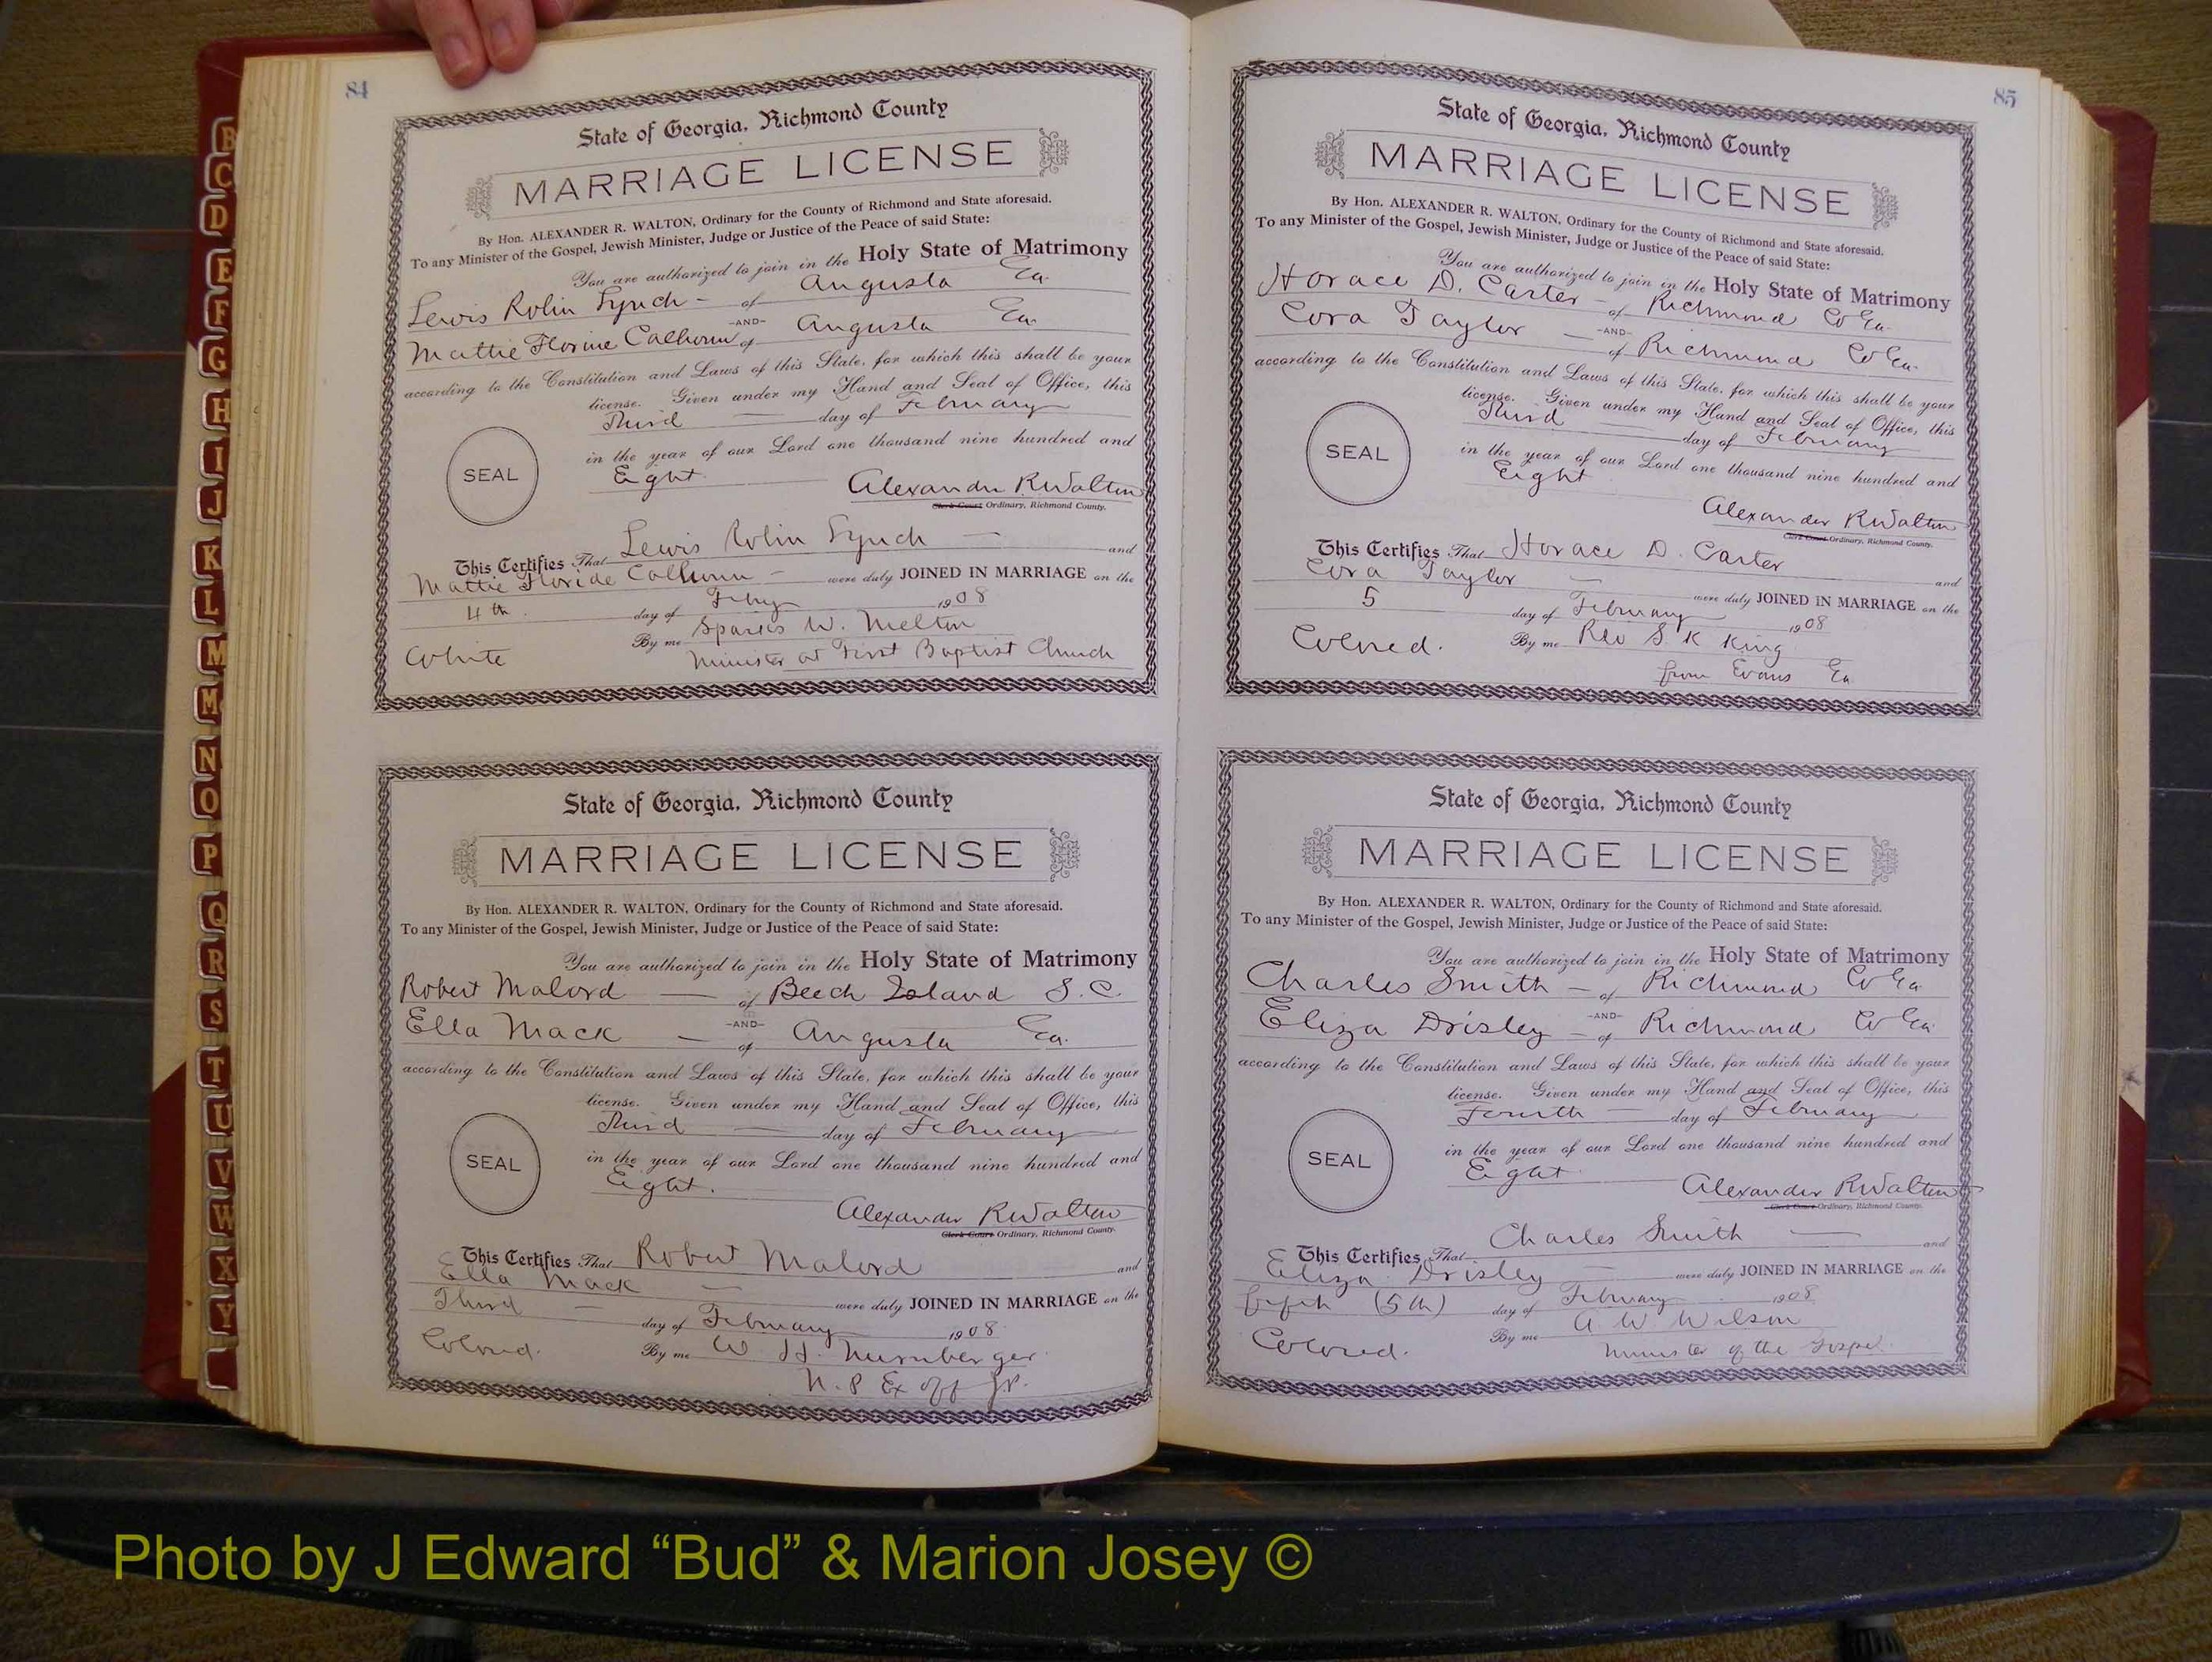 84
State of Georgia, Richmond County
MARRIAGE LICENSE
By Hon. ALEXANDER R. WALTON, Ordinary for the County of Richmond and State aforesaid.
To any Minister of the Gospel, Jewish Minister, Judge or Justice of the Peace of said State:
You are authorized to join in the Holy State of Matrimony
Lewis Rolin Lynch - of Augusta Ga.
-AND-
Mattie Florine Calhoun of Augusta Ga.
according to the Constitution and Laws of this State, for which this shall be your
license. Given under my Hand and Seal of Office, this
Third day of February
in the year of our Lord one thousand nine hundred and
SEAL
Eight
Alexander R Walton
Clerk Court Ordinary, Richmond County.
This Certifies That Lewis Rolin Lynch and
Mattie Floride Calhoun - were duly JOINED IN MARRIAGE on the
4th day of Feby 1908
By me Sparks W. Melton
White Minister at First Baptist Church
State of Georgia, Richmond County
MARRIAGE LICENSE
By Hon. ALEXANDER R. WALTON, Ordinary for the County of Richmond and State aforesaid.
To any Minister of the Gospel, Jewish Minister, Judge or Justice of the Peace of said State:
You are authorized to join in the Holy State of Matrimony
Robert Malord of Beech Island S.C.
-AND-
Ella Mack of Augusta Ga.
according to the Constitution and Laws of this State, for which this shall be your
license. Given under my Hand and Seal of Office, this
Third day of February
in the year of our Lord one thousand nine hundred and
SEAL
Eight.
Alexander R Walton
Clerk Court Ordinary, Richmond County.
This Certifies That Robert Malord and
Ella Mack were duly JOINED IN MARRIAGE on the
Third day of February 1908
Colored. By me W H. Nurnberger
N. P Ex off J.P.
85
State of Georgia, Richmond County
MARRIAGE LICENSE
By Hon. ALEXANDER R. WALTON, Ordinary for the County of Richmond and State aforesaid.
To any Minister of the Gospel, Jewish Minister, Judge or Justice of the Peace of said State:
You are authorized to join in the Holy State of Matrimony
Horace D. Carter - of Richmond Co Ga.
-AND-
Cora Taylor of Richmond Co Ga.
according to the Constitution and Laws of this State, for which this shall be your
license. Given under my Hand and Seal of Office, this
Third day of February
in the year of our Lord one thousand nine hundred and
SEAL
Eight
Alexander R Walton
Clerk Court Ordinary, Richmond County.
This Certifies That Horace D. Carter and
Cora Taylor were duly JOINED IN MARRIAGE on the
5 day of February 1908
Colored. By me Rev S. K King
from Evans Ga
State of Georgia, Richmond County
MARRIAGE LICENSE
By Hon. ALEXANDER R. WALTON, Ordinary for the County of Richmond and State aforesaid.
To any Minister of the Gospel, Jewish Minister, Judge or Justice of the Peace of said State:
You are authorized to join in the Holy State of Matrimony
Charles Smith - of Richmond Co Ga
-AND-
Eliza Drisley - of Richmond Co Ga
according to the Constitution and Laws of this State, for which this shall be your
license. Given under my Hand and Seal of Office, this
Fourth day of February
in the year of our Lord one thousand nine hundred and
SEAL
Eight
Alexander R Walton
Clerk Court Ordinary, Richmond County.
This Certifies That Charles Smith and
Eliza Drisley were duly JOINED IN MARRIAGE on the
fifth (5th) day of February 1908
Colored. By me A. W. Wilson
Minister of the Gospel.
B
C
D
E
F
G
H
I
J
K
L
M
Mc
N
O
P
Q
R
S
T
U
V
W
X
Y
Photo by J Edward “Bud” & Marion Josey ©